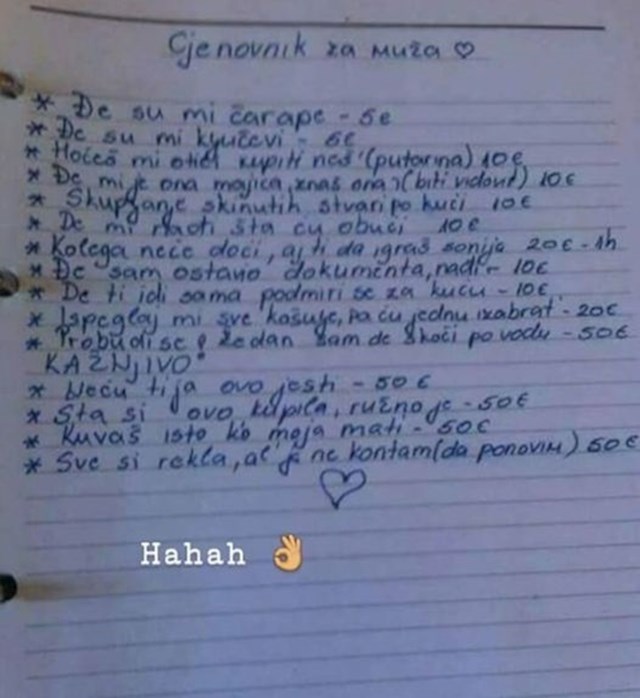 Cjenovnik za muža ♡
* Đe su mi čarape - 5e
* Đe su mi ključevi - 5€
* Hoćeš mi otić kupiti neš' (putarina) 10€
* Đe mi je ona majica, znaš ona? (biti vidovit) 10€
* Skupljanje skinutih stvari po kući 10€
* De mi nađi šta ću obući 10€
* Kolega neće doći, aj ti da igraš sonija 20€ - 1h
* Đe sam ostavio dokumenta, nađi - 10€
* De ti idi sama podmiri se za kuću - 10€
* Ispeglaj mi sve košulje, pa ću jednu izabrat - 20€
* Probudi se, žedan sam de skoči po vodu - 50€
KAŽNjIVO:
* Neću ti ja ovo jesti - 50€
* Šta si ovo kupila, ružno je - 50€
* Kuvaš isto ko moja mati - 50€
* Sve si rekla, al' ja ne kontam (da ponovim) 50€
♡
Hahah 👌